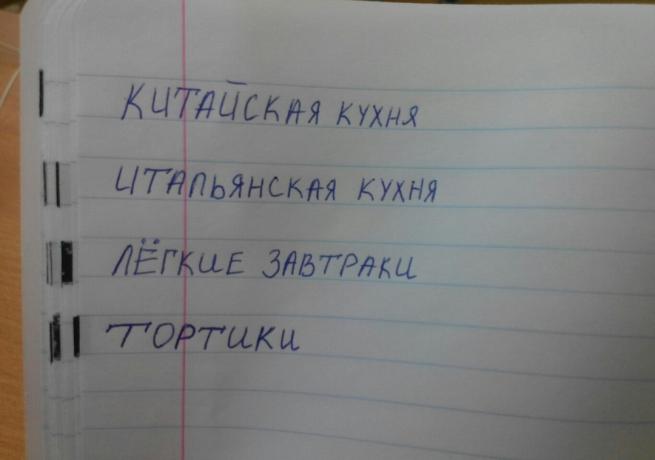 КИТАЙСКАЯ КУХНЯ
ИТАЛЬЯНСКАЯ КУХНЯ
ЛЁГКИЕ ЗАВТРАКИ
ТОРТИКИ